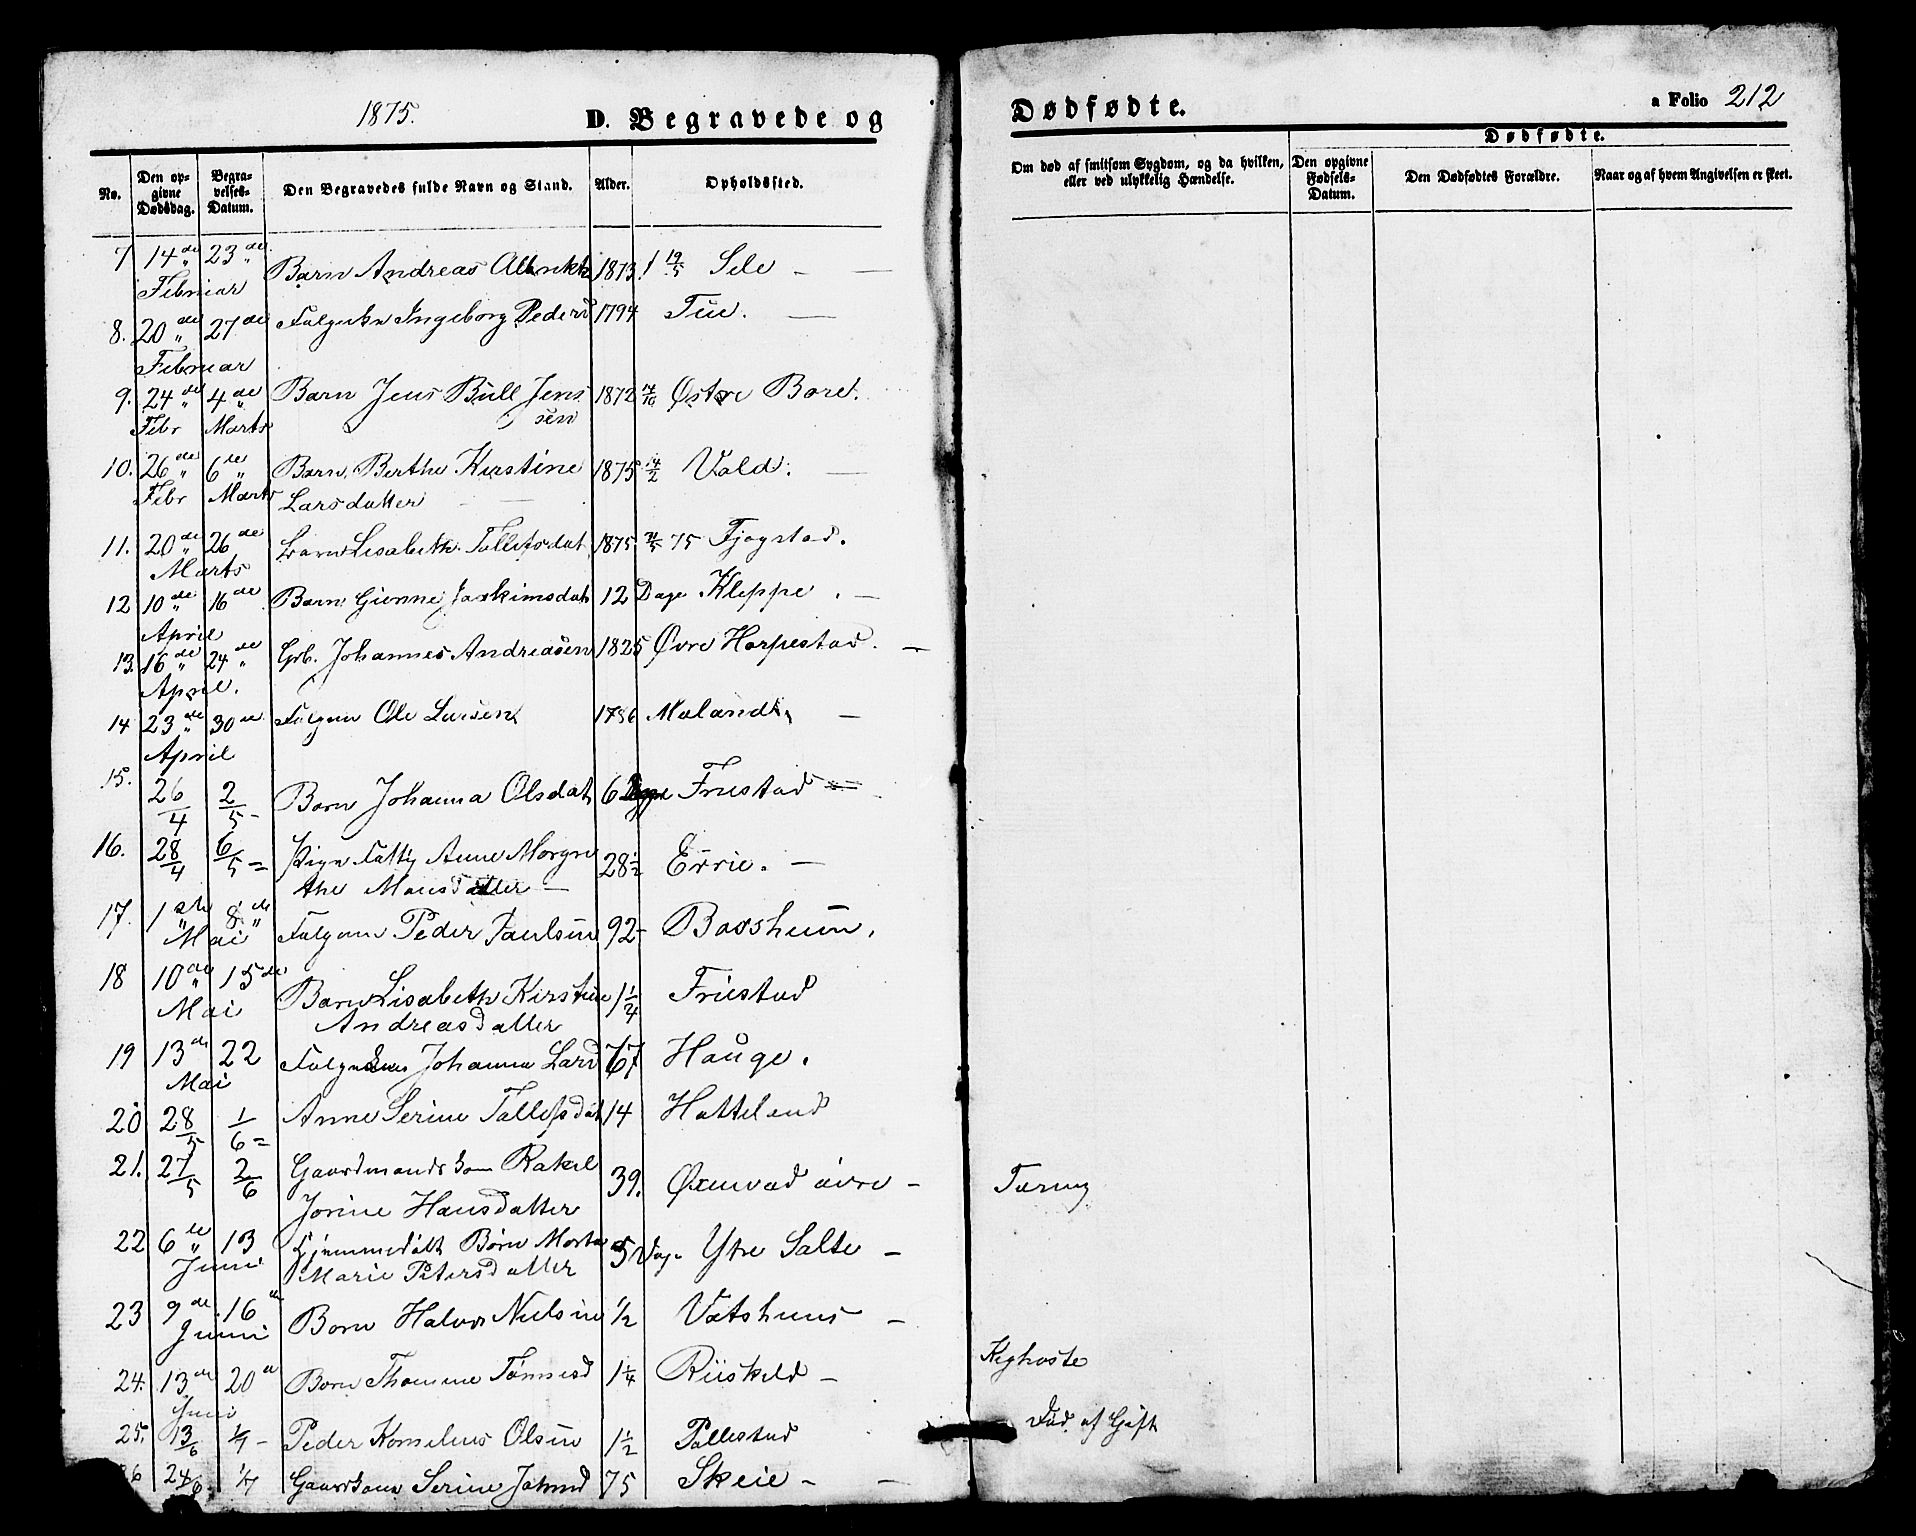 1875.
D. Begravede og
No.
Den op-
givne
Dødsdag.
Begra-
velses-
Datum.
Den Begravedes fulde Navn og Stand.
Alder.
Opholdssted.
7 14de 23de Barn Andreas 1873 19/5 Sele -
Februar
8. 20de 27de Ingeborg Peders 1794 Tue.
Februar
9. 24de 4de Barn Jens Bull Jens 1872 Østre Bore.
Febr Marts sen
10. 26de 6te Barn Berthe Kirstine 1875 14/2 Vold.
Febr Marts Larsdatter
11. 20de 26de Barn Lisabeth Tollefsdat 1875 75 Tjogstad.
Marts
12 10de 16de Barn Joakimsdat 12 Dage Kleppe. -
April
13. 16de 24de Grb. Johannes Andreasen 1825 Øvre Horpestad. -
April.
14 23de 30te Ole Larsen 1786 -
April
15. 26/4 2/5 - Barn Johanna Olsdat 6 Dage Friestad =
16. 28/4 6/5 = Anne Margre 28 1/2 Errie. -
the Monsdatter -
17. 1ste 8de Peder Paulsen 92 - Borsheim.
Mai
18 10de 15de Barn Lisabeth Kirstine 1 1/4 Friestad
Mai Andreasdatter
19 13de 22 Johanna Larsd 67 Hauge.
Mai
20 28/5 1/6 = Anne Serine Tollefsdat 14 Hatteland
21. 27/5 2/6 Gaardmandskone Rakel 39. Øxnevad øvre -
Jorine Hansdatter
22 6te 13 Hjemmedøbt Børn 5 Dage Ytre Salte -
Juni Marie Petersdatter
23 9de 16de Barn Halvor Nielsen 1/2 Vatshuus -
Juni
24. 13de 20de Barn Thomine Tønnesd 1 1/4 -
Juni
25. 13/6 1/7 - Peder Kornelius Olsen 1 1/2 Pollestad
26 24/6 1/7 Gaardkone Serine 75 Skeie -
Dødfødte.
a Folio 212
Om død af smitsom Sygdom, og da hvilken,
eller ved ulykkelig Hændelse.
Dødfødte.
Den opgivne
Fødsels-
Datum.
Den Dødfødtes Forældre.
Naar og af hvem Angivelsen er skeet.
Tæring
Kighoste
Død af Gift